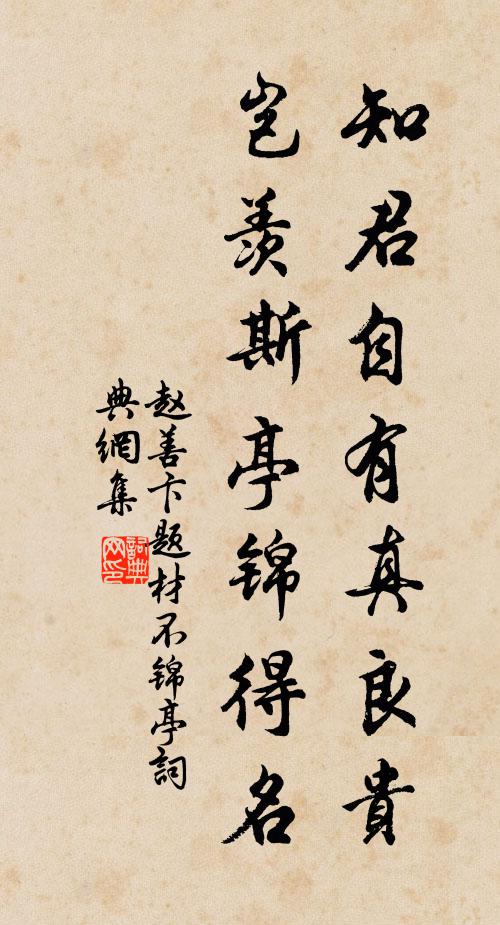 知君自有真良貴
岂羨斯亭锦得名
赵善卞題材不锦亭詞
典網集
詞典网印